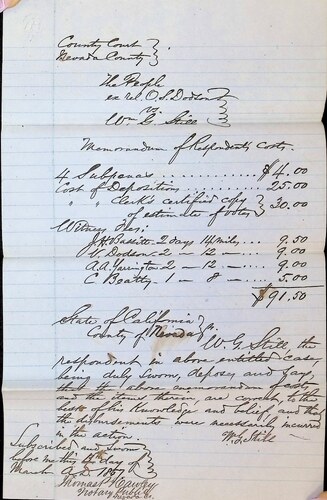 County Court }
Nevada County }
The People
ex rel. O. S. Dodson }
vs }
Wm G Still }
Memorandum of Respondents Costs.
4 Subpenas . . . . . . . . . . . . $4.00
Cost of Depositions . . . . . . . 25.00
" " Clerk's certified copy }
of estimate of votes } 30.00
Witness fees:
2 days 14 miles . . . 9.50
Dodson 2 — 12 — . . 9.00
A. A. 2 — 12 — . . 9.00
C Beatty 1 — 8 — . . . 5.00
$91.50
State of California }
County of Nevada } ss.
W. G. Still, the
respondent in above entitled case,
being duly sworn, deposes and says
that the above memorandum of costs
and the items therein, are correct, to the
best of his knowledge and belief, and that
the disbursements were necessarily incurred
in the action.
W. G. Still
Subscribed and sworn
before me this
March A.D.
Thomas P. Hawley
Notary Public